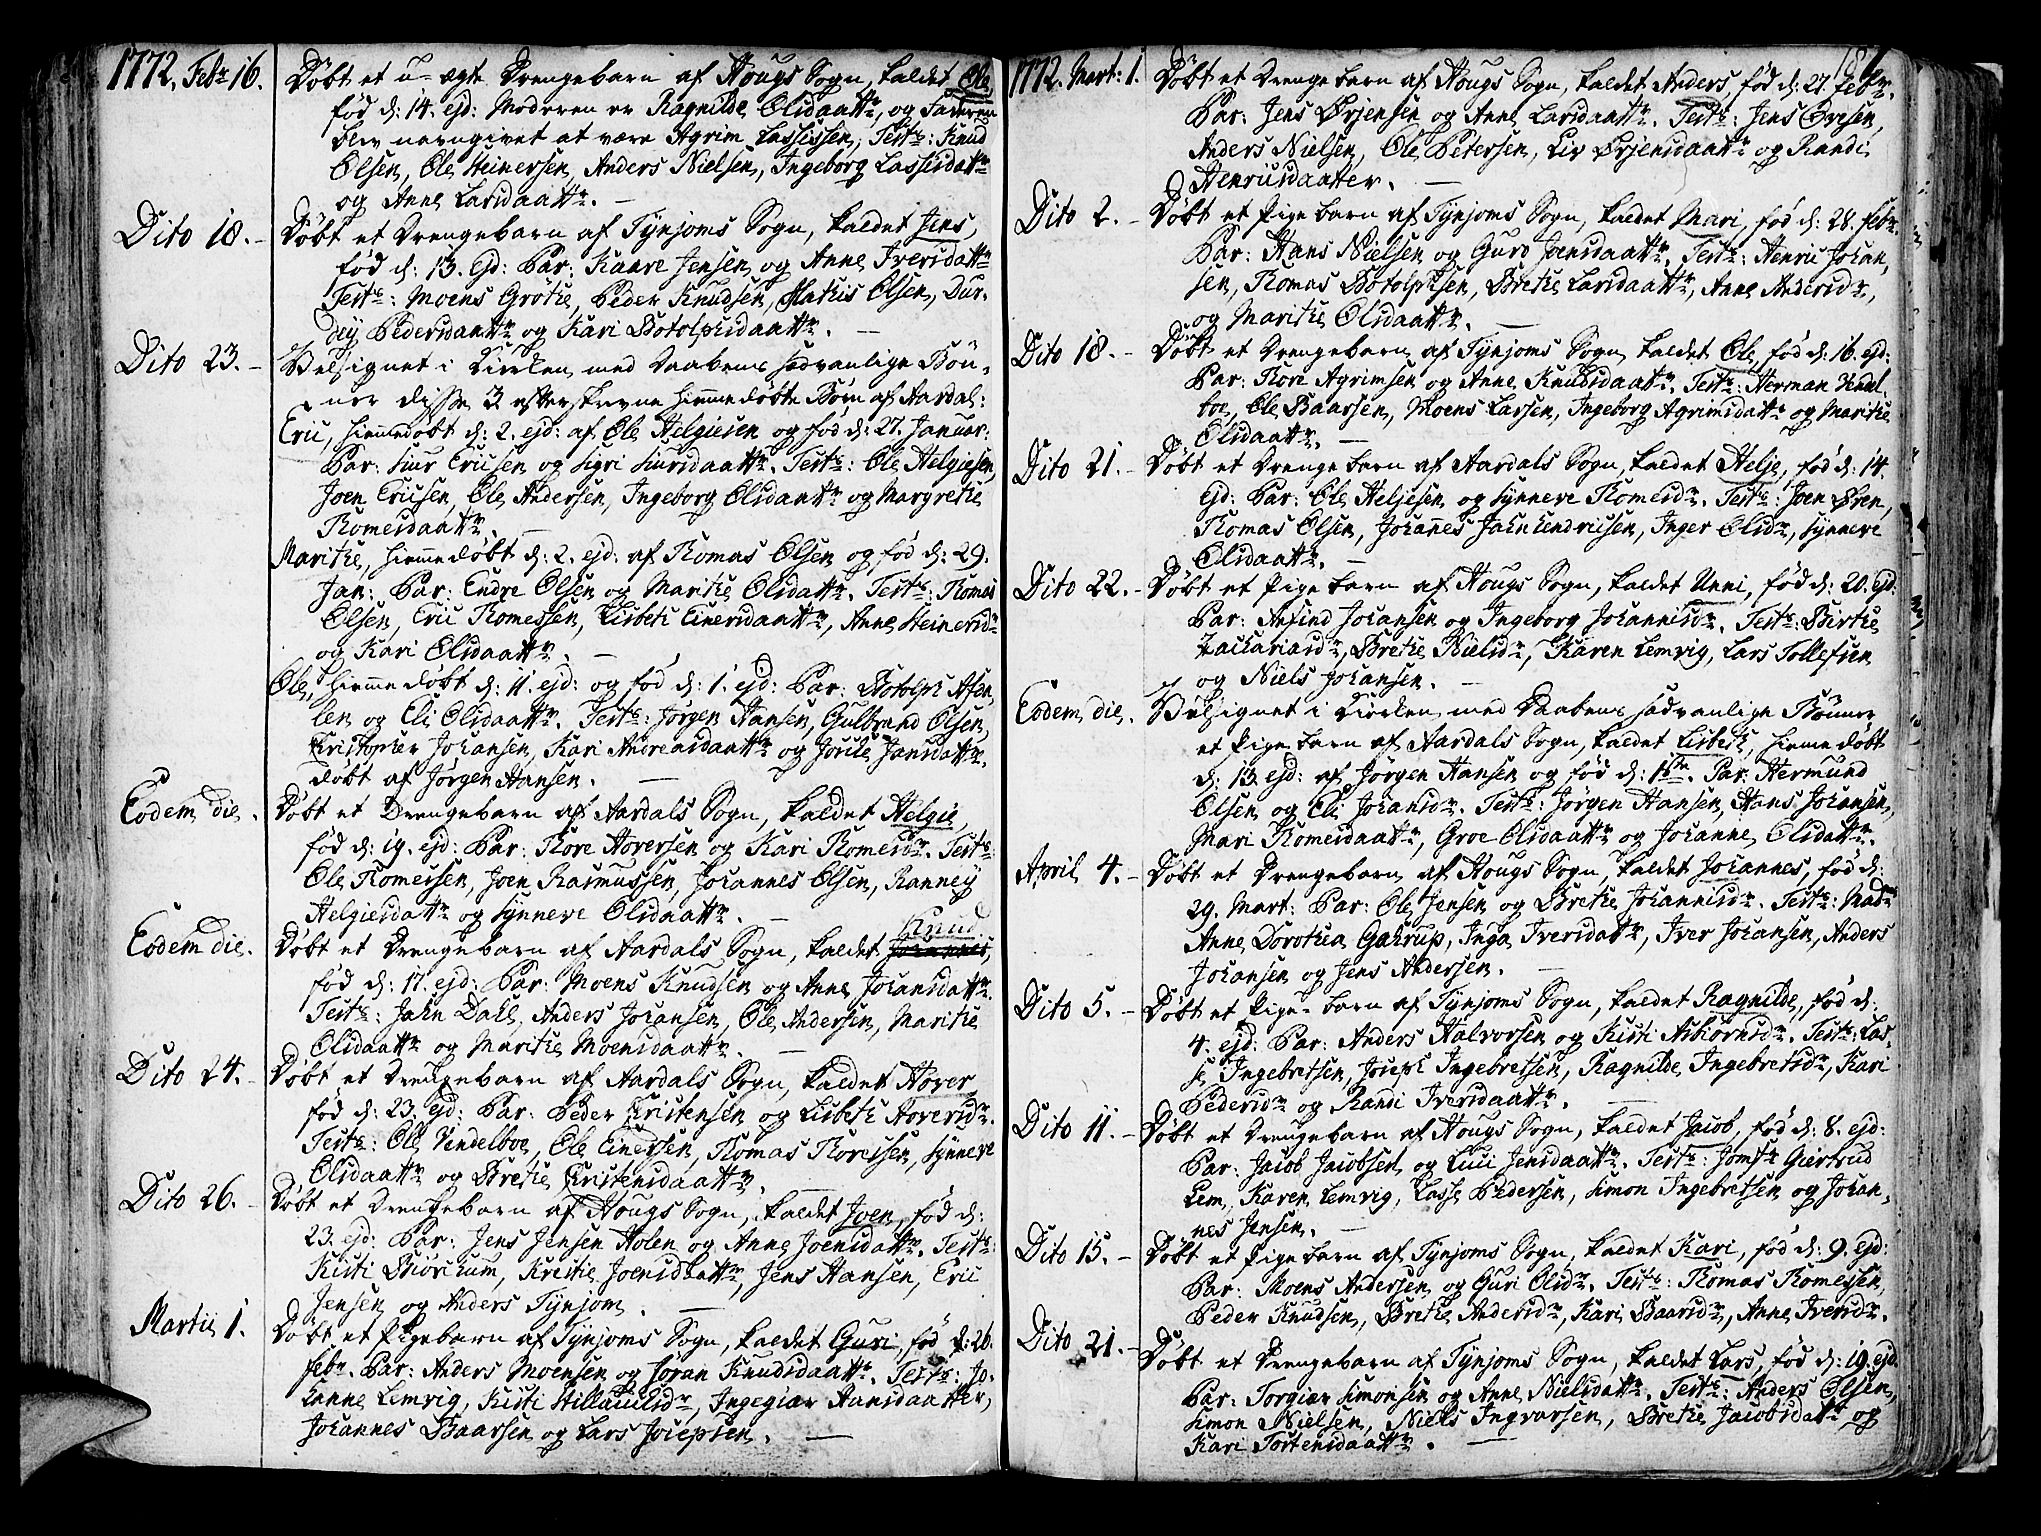 1772. Febr 16. Døbt et u-ægte Drengebarn af Hougs Sogn, kaldet Ole,
fød d: 14. ejd: Moderen er Ragnilde Olsdaattr, og Faderen
blev navngivet at være Agrim Lassissen, Tests: Knud
Olsen, Ole Heinersen, Anders Nielsen, Ingeborg Lassesdattr
og Anne Larsdaattr. —
Dito 18. – Døbt et Drengebarn af Tynjoms Sogn, kaldet Jens,
fød d: 13. Ejd: Par: Kaare Jensen og Anne Iversdattr
Tests: Moens Grøthe, Peder Knudsen, Mathis Olsen, Dur-
dey Pedersdaattr og Kari Botolphsdaattr. —
Dito 23. – Velsignet i Kirken med Daabens sædvanlige Bøn-
ner disse 3 efterskrevne hiemmedøbte Børn af Aardal:
Eric, hiemmedøbt d: 2. ejd: af Ole Helgiesen og fød d: 27. Januar:
Par: Siur Ericsen og Sigri Siursdaattr. Tests: Ole Helgiesen,
Joen Ericsen, Ole Andersen, Ingeborg Olsdaattr og Margrethe
Thomesdaattr. —
Marithe, hiemmedøbt d: 2. ejd: af Thomas Olsen og fød d: 29.
Jan: Par: Endre Olsen og Marithe Olsdattr. Tests: Thomas
Olsen, Eric Thomessen, Lisbeth Einersdaattr, Anne Heinersdr
og Kari Olsdaattr. —
Ole, hiemmedøbt d: 11. ejd: og fød d: 1. ejd: Par: Botolph Asen-
len og Eli Olsdaattr. Tests: Jørgen Hansen, Gulbrand Olsen,
Christopher Johansen, Kari Andreasdaattr og Jorile Jansdattr.
døbt af Jørgen Hansen. —
Eodem die. Døbt et Drengebarn af Aardals Sogn, kaldet Helgie,
fød d: 19. ejd: Par: Thore Hoversen og Kari Thomesdr. Tests:
Ole Thomessen, Joen Rasmussen, Johannes Olsen, Ranney
Helgiesdattr og Synneve Olsdaattr. —
Knud
Eodem die. Døbt et Drengebarn af Aardals Sogn, kaldet Johannes,
fød d: 17. ejd: Par: Moens Knudsen og Anne Johansdattr.
Tests: Jahn Dahl, Anders Johansen, Ole Andersen, Marithe
Olsdaattr og Marithe Moensdaattr. —
Dito 24. – Døbt et Drengebarn af Aardals Sogn, kaldet Hover
fød d: 23. ejd: Par: Peder Christensen og Lisbeth Hoversdr.
Tests: Ole Vindelboe, Ole Einersen, Thomas Thoressen, Synneve
Olsdaattr og Brethe Christensdaattr. —
Dito 26. – Døbt et Drengebarn af Hougs Sogn, kaldet Joen, fød d:
23. ejd: Par: Jens Jensen Holen og Anne Joensdattr. Tests:
Kisti Biørchum, Krestie Joensdaattr, Jens Hansen, Eric
Jensen og Anders Tynjom. —
Martii 1. Døbt et Pigebarn af Tynjoms Sogn, kaldet Guri, fød d: 26.
febr. Par: Anders Moensen og Jøran Knudsdaattr. Tests: Jo-
hanne Lemvig, Kisti Hillauldsdr, Ingegiær Hansdaatter,
Johannes Baarsen og Lars Josepsen. —
187
1772. Mart: 1. Døbt et Drengebarn af Hougs Sogn, kaldet Anders, fød d: 27. febr.
Par: Jens Ørjensen og Anne Larsdaattr. Tests: Jens Ivesen,
Anders Nielsen, Ole Petersen, Liv Ørjensdaattr og Randi
Henricsdaatter. —
Dito 2. – Døbt et Pigebarn af Tynjoms Sogn, kaldet Mari, fød d: 28. febr.
Par: Hans Nielsen og Guro Joensdaattr. Tests: Henric Johan-
sen, Thomas Botolphsen, Brethe Larsdaattr, Anne Andersdr,
og Marithe Olsdaattr. —
Dito 18. – Døbt et Drengebarn af Tynjoms Sogn kaldet Ole, fød d: 16. ejd:
Par: Thore Agrimsen og Anne Knudsdaattr. Tests: Herman Vendel-
boe, Ole Baarsen, Moens Larsen, Ingeborg Agrimsdattr og Marithe
Olsdaattr. —
Dito 21. – Døbt et Drengebarn af Aardals Sogn, kaldet Helje, fød d: 14.
ejd: Par: Ole Heljesen og Synneve Thomesdr. Tests: Joen Øren,
Thomas Olsen, Johannes Jahnhendricsen, Inger Olsdr, Synneve
Olsdaattr. —
Dito 22. – Døbt et Pigebarn af Hougs Sogn, kaldet Unni, fød d: 20. ejd:
Par: Anfind Johansen og Ingeborg Johannisdr. Tests: Birthe
Zachariasdr, Brethe Nielsdr, Karen Lemvig, Lars Tollefsen
og Niels Johansen. —
Eodem die. Velsignet i Kirken med Daabens sædvanlige Bønner
et Pigebarn af Aardals Sogn, kaldet Lisbeth, hiemmedøbt
d: 13. ejd: af Jørgen Hansen og fød d: 15. Par: Hermund
Olsen og Eli Johansdr. Tests: Jørgen Hansen, Hans Johansen,
Mari Thomesdaattr, Groe Olsdaattr og Johanne Olsdattr.
April 4. – Døbt et Drengebarn af Hougs Sogn, kaldet Johannes, fød d:
29. Mart: Par: Ole Jensen og Brethe Johannisdr. Tests: Madr
Anne Dorothea Gahrup, Inga Iversdattr, Iver Johansen, Anders
Johansen og Jens Andersen. —
Dito 5. – Døbt et Pige-barn af Tynjoms Sogn, kaldet Ragnilde, fød d:
4. ejd: Par: Anders Halvorsen og Kisti Asbiørnsdr. Tests: Las-
se Ingebretsen, Joseph Ingebretsen, Ragnilde Ingebretsdr, Kari
Pedersdr og Randi Iversdaattr. —
Dito 11. – Døbt et Drengebarn af Hougs Sogn, kaldet Jacob, fød d: 8. ejd:
Par: Jacob Jacobsen og Luci Jensdaattr. Tests: Jomfr Giertrud
Lem, Karen Lemvig, Lasse Pedersen, Simon Ingebretsen og Johan-
nes Jensen. —
Dito 15. – Døbt et Pigebarn af Tynjoms Sogn, kaldet Kari, fød d: 9. ejd:
Par: Moens Andersen og Guri Olsdr. Tests: Thomas Thomessen,
Peder Knudsen, Brethe Andersdr, Kari Baarsdr, Anne Iversdr.
Dito 21. – Døbt et Drengebarn af Tynjoms Sogn, kaldet Lars, fød d: 19. ejd.
Par: Torgier Simonsen og Anne Nielsdattr. Tests: Anders Olsen,
Simon Nielsen, Niels Ingvarsen, Brethe Jacobsdattr og
Kari Torstensdaattr. —